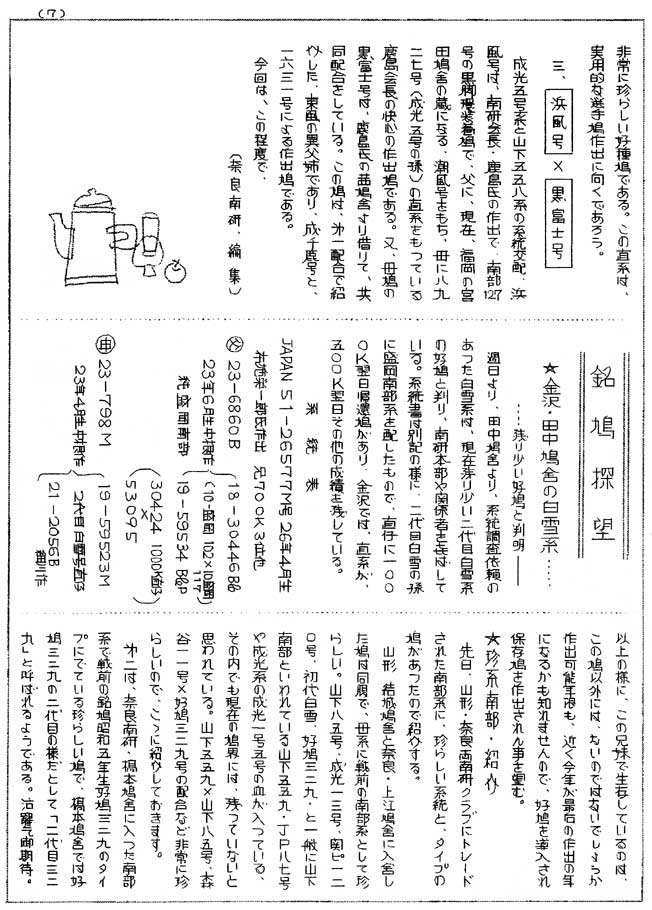 (7)
非常に珍らしい好種鳩である。この直系は、
実用的な選手鳩作出に向くであろう。
三、浜風号×黒富士号
成光五号系と山下五五八系の系統交配、浜
風号は、南研会長・鹿島氏の作出で、南部127
号の黒脚環装着鳩で、父に、現在、福岡の宮
田鳩舎の蔵になる、潮風号をもち、母に八九
二七号(成光五号の孫)の直系をもつている
鹿島会長の快心の作出鳩である。又、母鳩の
黒富士号は、鹿島氏の 鳩舎より借りて、共
同配合をしている。この鳩は、第一配合で紹
介した、東風の異父姉であり、成千鹿号と、
一六三一号による作出鳩である。
今回は、この程度で、
(奈良南研、編集)
銘鳩探望
★金沢・田中鳩舎の白雪系……
……残り少い好鳩と判明――
週日より、田中鳩舎より、系統調査依頼の
あつた白雪系は、現在残り少い二代目白雪系
の好鳩と判り、南研本部や関係者を喜ばして
いる。系統書は別記の様に、二代目白雪の孫
に盛岡南部系を配したもので、直仔に一〇〇
〇K翌日帰還鳩があり、金沢では、直系が、
五〇〇K翌日その他の成績を残している。
系統表
JAPAN 51-26577M号 26年4月生
布施栄一郎氏作出 兄700K3位他
父 23-6860B
23年6月生中操作
純盛岡南部
18-30446B♂
(10-盛岡102×10盛岡117)
19-59534B&P
30424 1000K
×
53095
母 23-798M
23年4月生中操作
19-59523M
2代目白雪号直仔
21-2056B
以上の様に、この兄妹で生存しているのは、
この鳩以外には、ないのではないでしょうか
作出可能年令も、近く今年が最后の作出の年
になるかも知れませんので、好鳩を導入され
保存鳩を作出されん事を望む。
★珍系南部・初入り
先日、山形・奈良両南研クラブにトレード
された南部系に、珍らしい系統と、タイプの
鳩があつたので紹介する。
山形、結城鳩舎と奈良・上江鳩舎に入舎し
た鳩は同腹で、母系に戦前の南部系として珍
らしい。山下八五号・成光一三号、関ピー二
〇号、初代白雪、好鳩三二九・と一般に山下
南部といわれている山下五五九・JP八七号
や成光系の成光一号五号の血が入つている、
その内でも現在の鳩界には、残つていないと
思われている。山下五五九×山下八五号、森
谷一一号×好鳩三二九号の配合など非常に珍
らしいので、こゝに紹介しておきます。
第二は、奈良南研・橋本鳩舎に入つた南部
系で戦前の銘鳩昭和五年生好鳩三二九のタイ
プにでている珍らしい鳩で、橋本鳩舎では好
鳩三二九の二代目の様だとして「二代目三二
九」と呼ばれるようである。活躍を御期待。